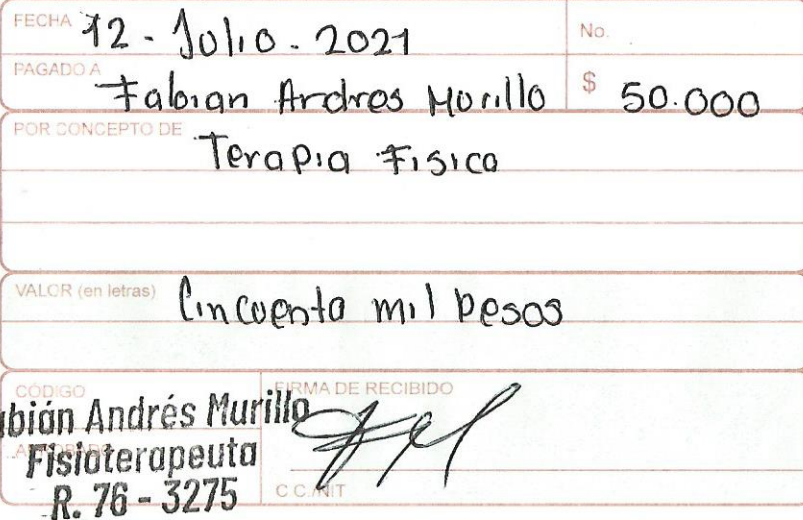 FECHA 12 - Julio - 2021 No.
PAGADO A Fabian Andres Morillo $ 50.000
POR CONCEPTO DE Terapia Fisica
VALOR (en letras) Cincuenta mil pesos
CÓDIGO FIRMA DE RECIBIDO
bián Andrés Murillo
Fisioterapeuta
R. 76 - 3275 C.C./NIT